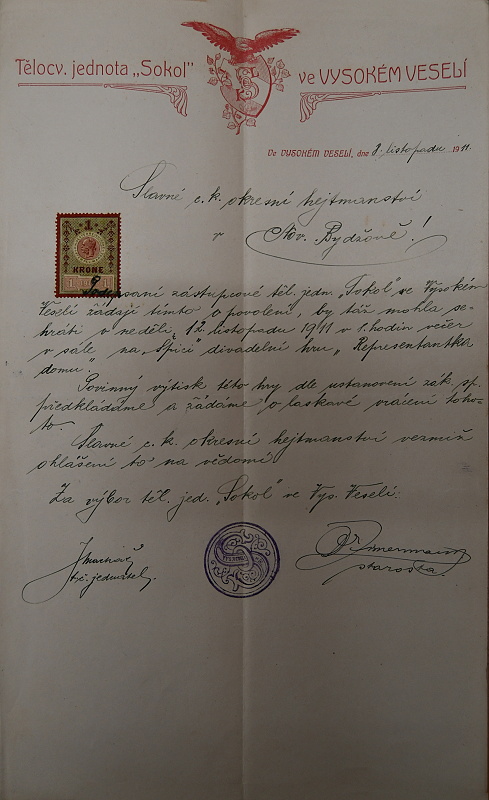 Tělocv. jednota „Sokol" ve VYSOKÉM VESELÍ
Ve VYSOKÉM VESELÍ, dne 8. listopadu 1911.
Slavné c. k. okresní hejtmanství
v Nov. Bydžově!
1
KRONE
Podepsaní zástupcové těl. jedn. „Sokol" ve Vysokém
Veselí žádají tímto o povolení, by táž mohla se-
hráti v neděli, 12. listopadu 1911 v 1. hodin večer
v sále na „Špici" divadelní hru „Representantka
domu."
Povinný výtisk této hry dle ustanovení zák. sp.
předkládáme a žádáme o laskavé vrácení toho-
to.
Slavné c. k. okresní hejtmanství vezmiž
ohlášení to na vědomí
Za výbor těl. jed. „Sokol" ve Vys. Veselí:
jednatel.
starosta.